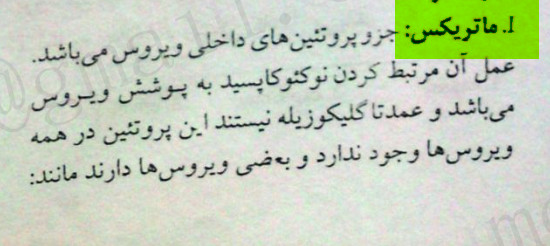 I. ماتریکس: جزو پروتئین‌های داخلی ویروس می‌باشد.
عمل آن مرتبط کردن نوکئوکاپسید به پوشش ویروس
می‌باشد و عمدتا گلیکوزیله نیستند این پروتئین در همه
ویروس‌ها وجود ندارد و بعضی ویروس‌ها دارند مانند: